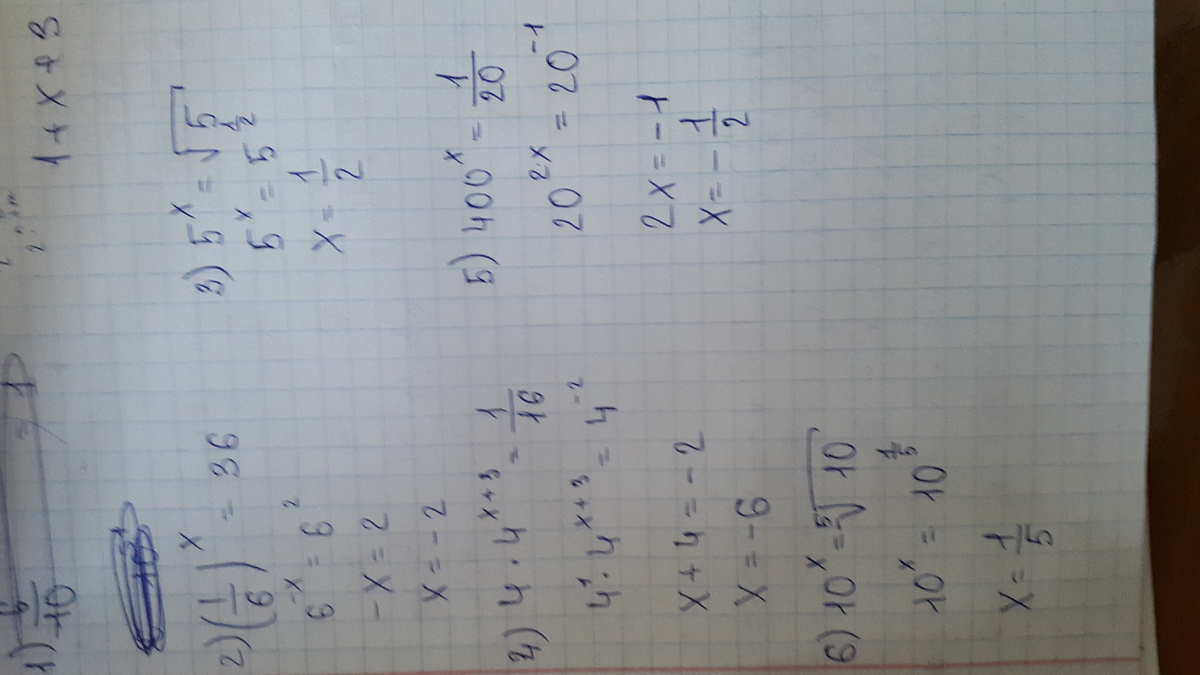 1 + x + 3
1)
2) (1/6)^x = 36
6^-x = 6^2
-x = 2
x = -2
3) 5^x = √5
5^x = 5^1/2
x = 1/2
4) 4 · 4^x+3 = 1/16
4^1 · 4^x+3 = 4^-2
x + 4 = -2
x = -6
5) 400^x = 1/20
20^2x = 20^-1
2x = -1
x = -1/2
6) 10^x = ⁵√10
10^x = 10^1/5
x = 1/5